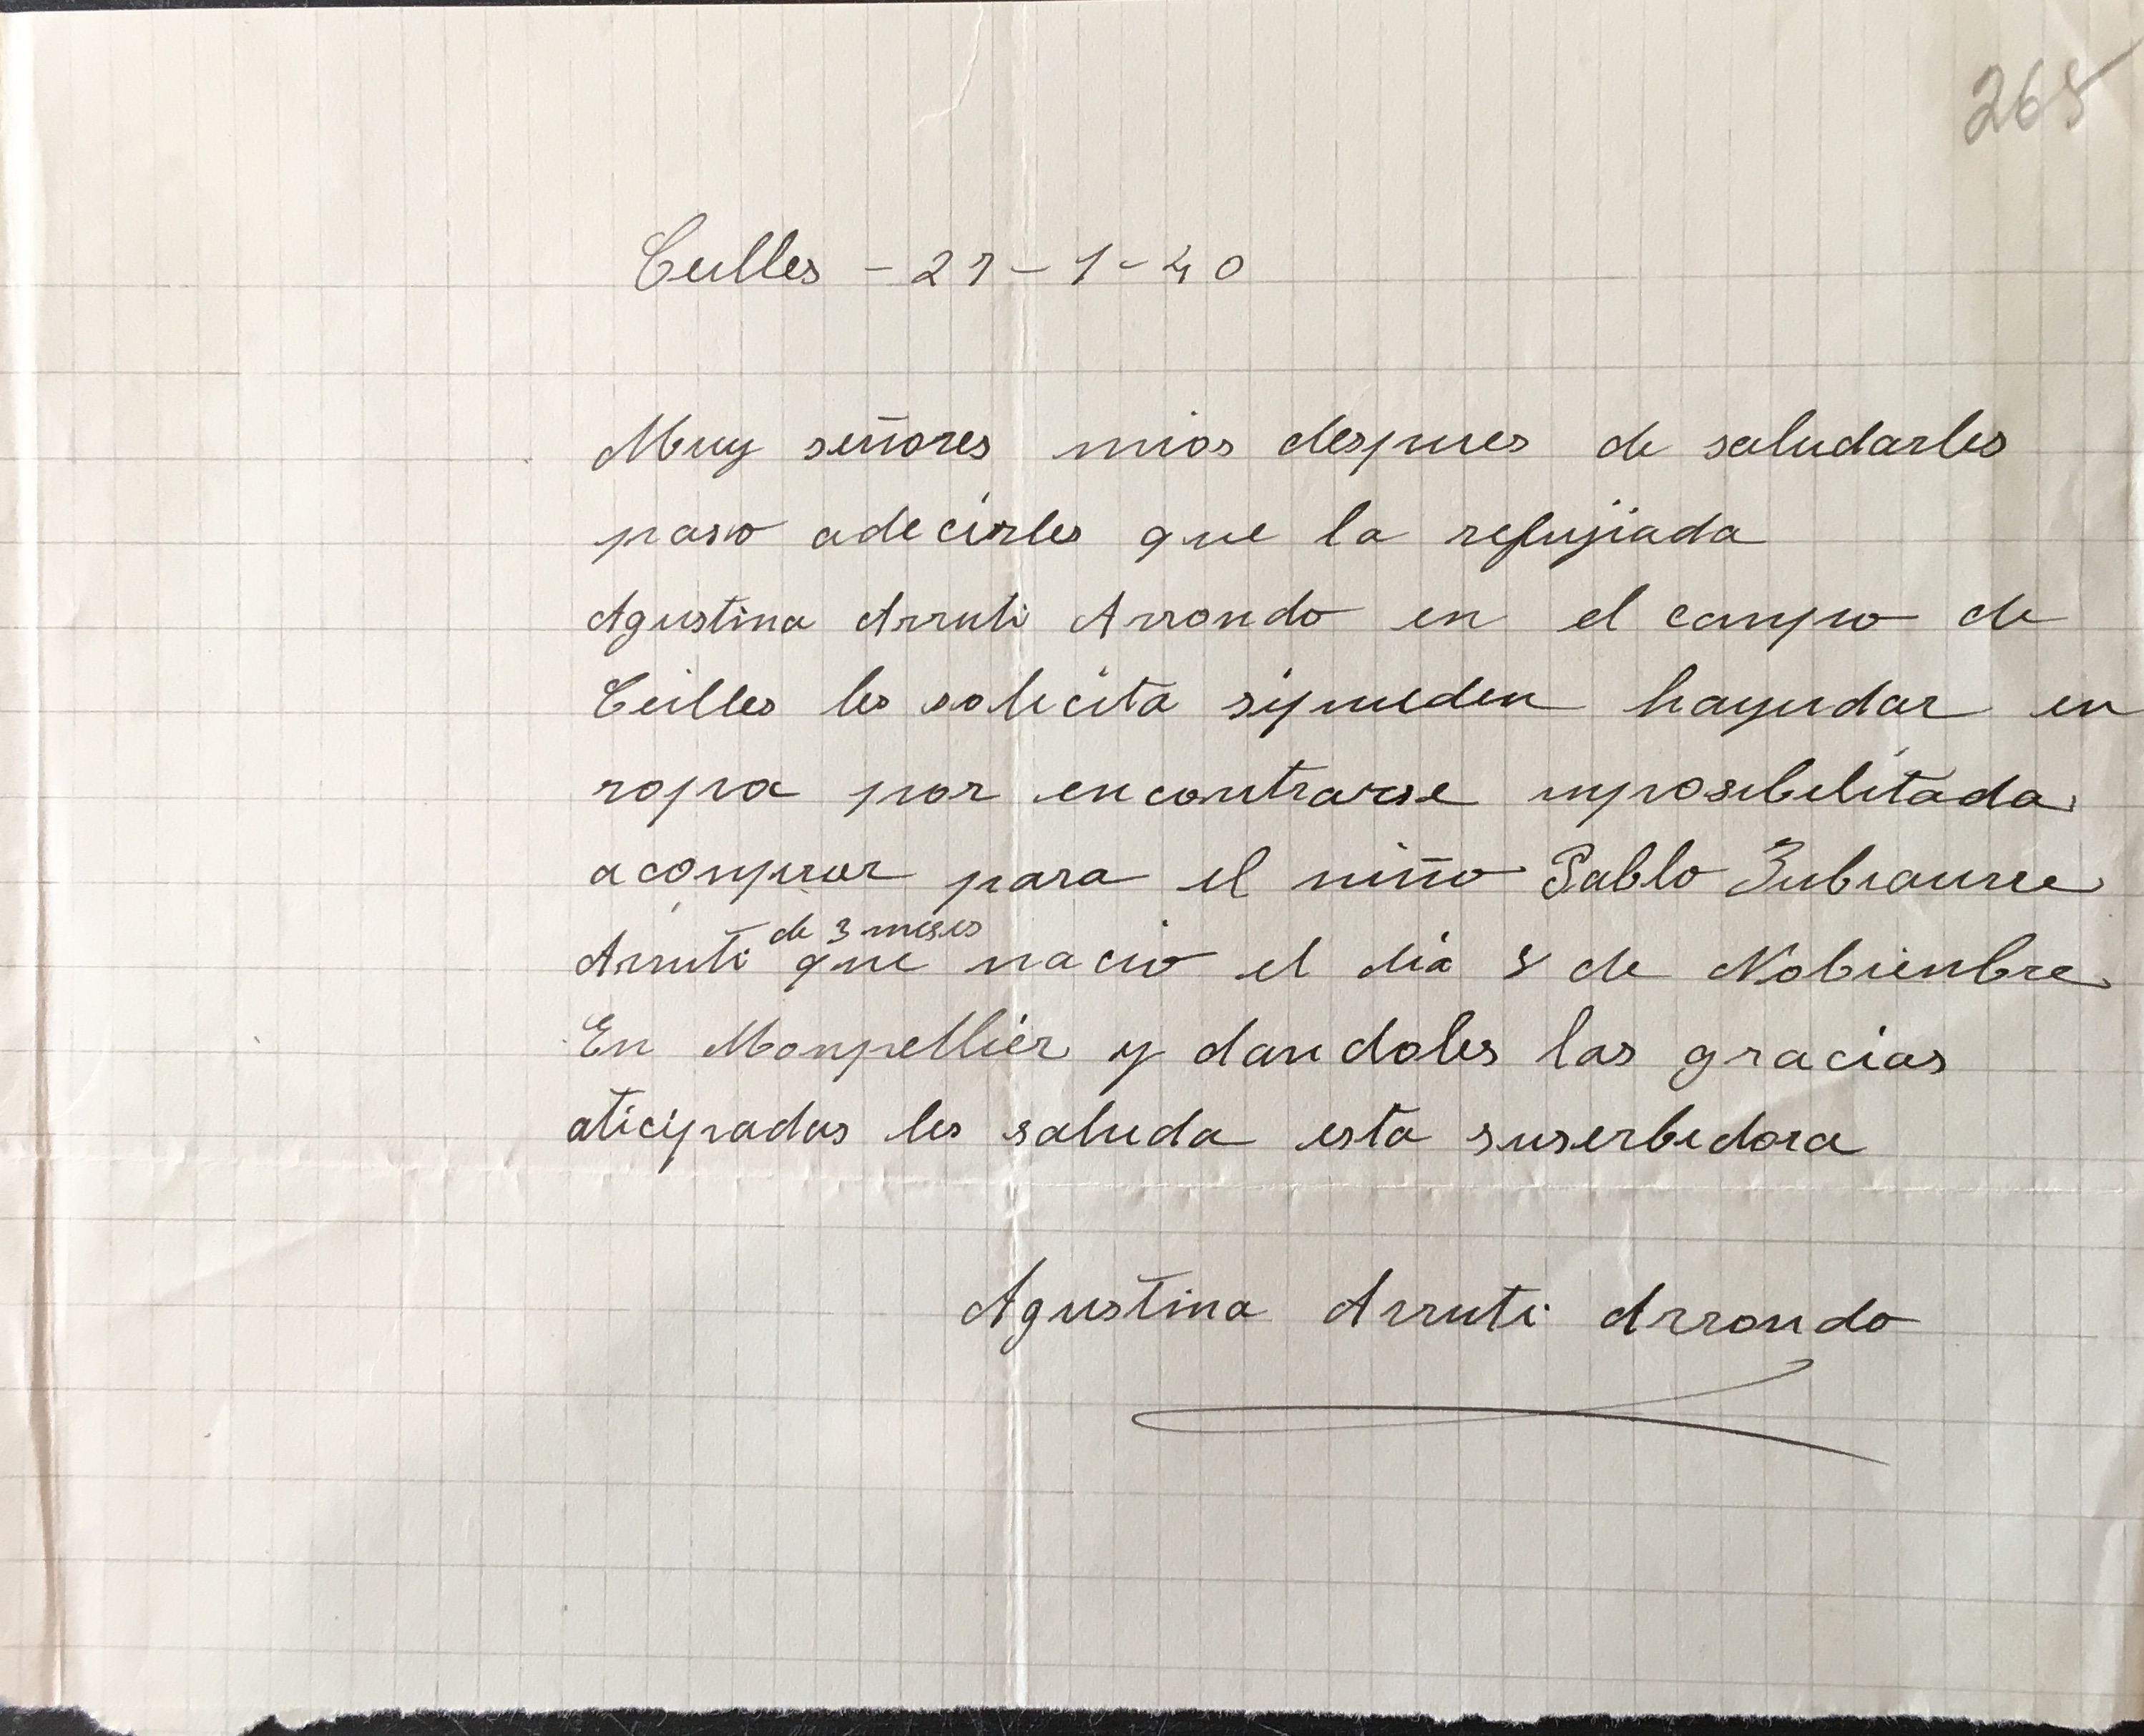 265
Ceilles - 27-1-40
Muy señores mios despues de saludarles
paso adecirles que la refujiada
Agustina Arruti Arrondo en el campo de
Ceilles les solicita sipueden hayudar en
ropa por encontrarse inposibilitada
acomprar para el niño Pablo Zubiaurre
de 3 meses
Arruti que nacio el dia 8 de Nobienbre
En Monpellier y dandoles las gracias
aticipadas les saluda esta suserbidora
Agustina Arruti Arrondo